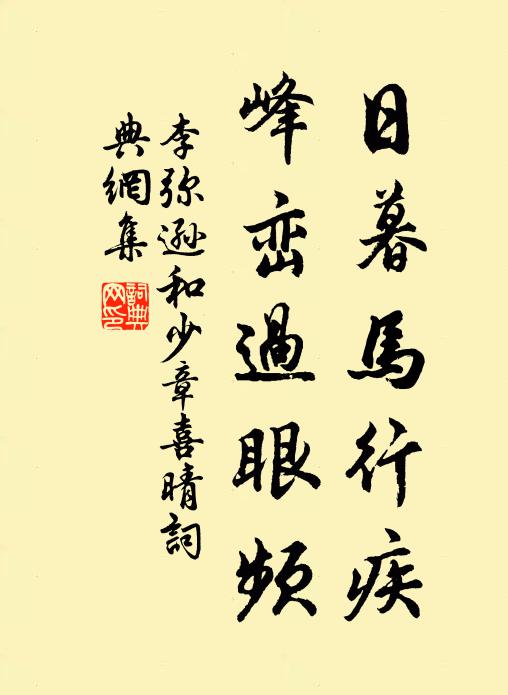 日暮馬行疾
峰峦過眼頻
李弥遜和少章喜晴詞
典網集
詞典
网印